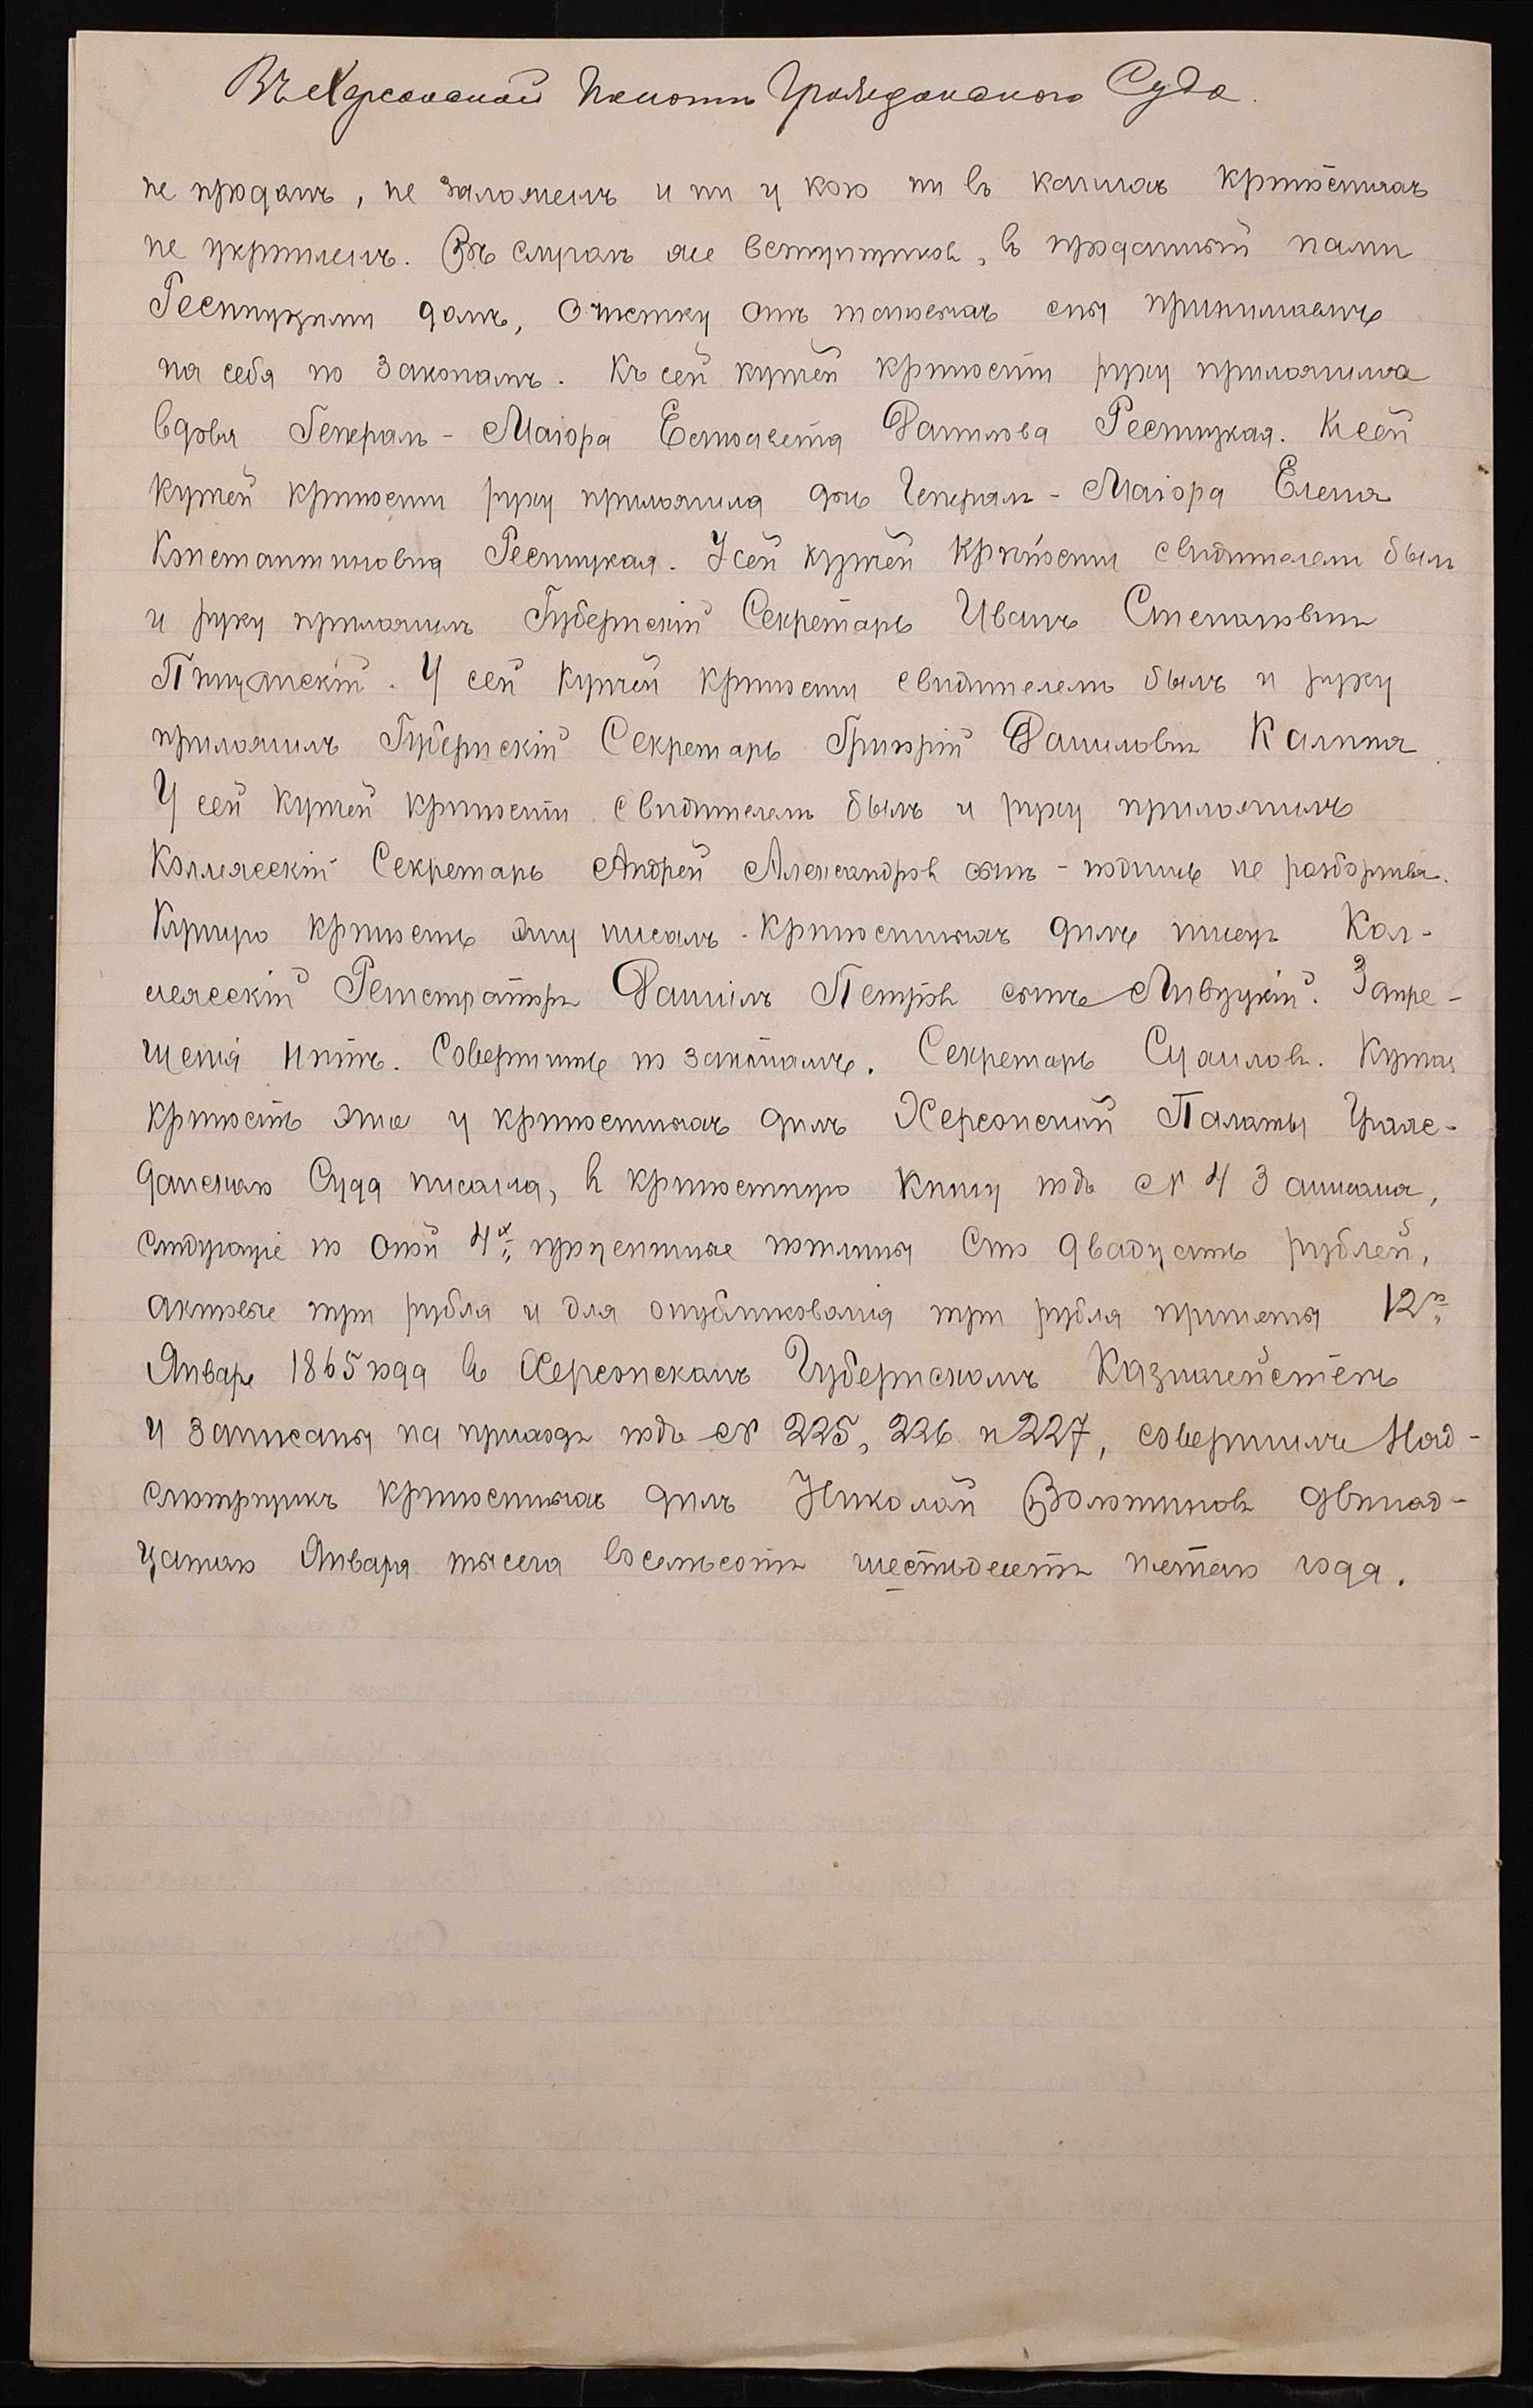 Въ Херсонской Палатѣ Гражданскаго Суда.
не проданъ, не заложенъ и ни у кого ни въ какихъ крѣпостяхъ
не укрѣпленъ. Въ случаѣ же вступщиковъ, въ проданный нами
домъ, очистку отъ таковыхъ мы принимаемъ
на себя по законамъ. Къ сей купчей крѣпости руку приложила
вдова Генералъ-Маіора Елисавета Данилова Реслицкая. К сей
купчей крѣпости руку приложила дочь Генералъ-Маіора Елена
Константиновна Реслицкая. У сей купчей крѣпости свидѣтелемъ былъ
и руку приложилъ Губернскій Секретарь Иванъ Степановичъ
У сей купчей крѣпости свидѣтелемъ былъ и руку
приложилъ Губернскій Секретарь Григорій Даниловъ Калина
У сей купчей крѣпости свидѣтелемъ былъ и руку приложилъ
Коллежскій Секретарь Андрей Александровъ сынъ - подпись не разборчива.
Купчую крѣпость эту писалъ крѣпостныхъ дѣлъ писецъ Кол-
лежскій Регистраторъ Даніилъ Петровъ сынъ Запре-
щенія нѣтъ. Совершить по законамъ. Секретарь Купчая
крѣпость эта у крѣпостныхъ дѣлъ Херсонской Палаты Граж-
данскаго Суда писана, въ крѣпостную книгу подъ № 4 записана,
слѣдующіе по оной 4х процентные пошлины сто двадцать рублей,
актовые три рубля и для опубликованія три рубля приняты 12го
Января 1865 года въ Херсонскомъ Губернскомъ Казначействѣ
и записаны на приходъ подъ № 225, 226 и 227, совершилъ Над-
смотрщикъ крѣпостныхъ дѣлъ Николай двѣнад-
цатаго Января тысяча восемьсотъ шестьдесятъ пятаго года.